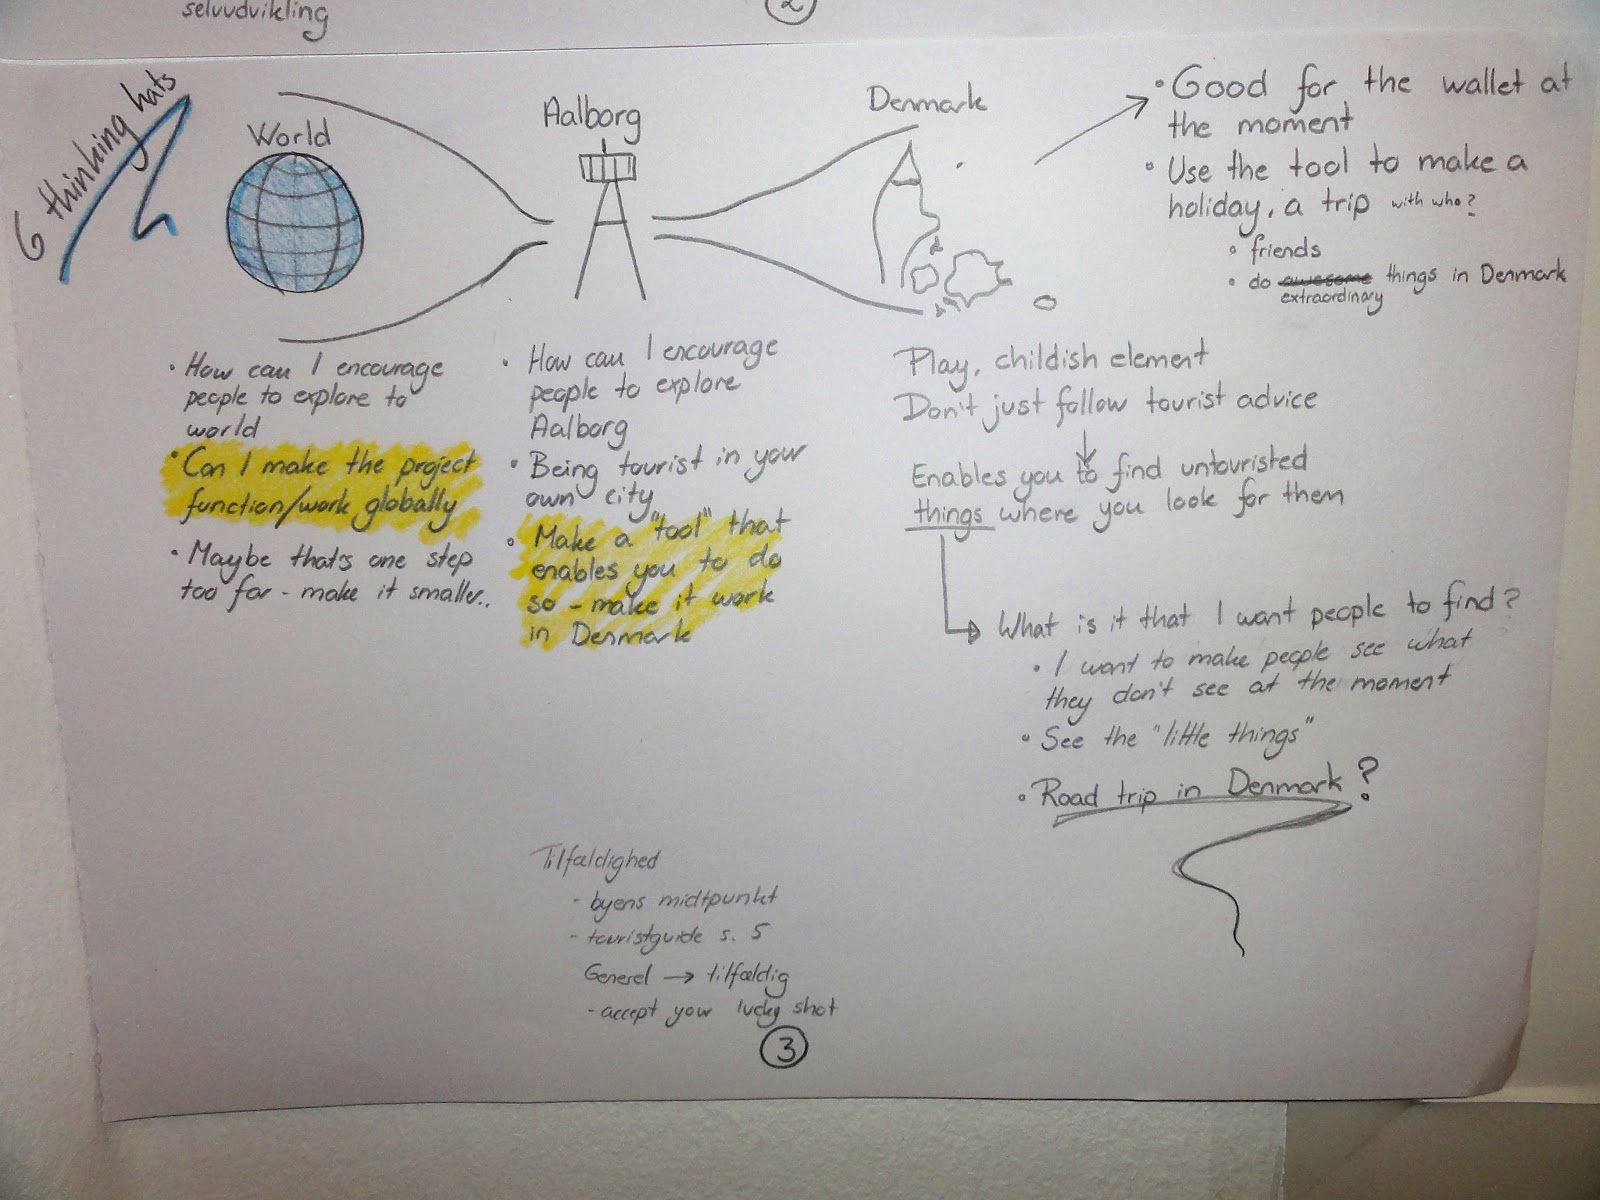 selvudvikling
2
6 thinking hats
World
• How can I encourage
people to explore to
world
• Can I make the project
function/work globally
• Maybe that's one step
too far - make it smaller..
Aalborg
• How can I encourage
people to explore
Aalborg
• Being tourist in your
own city
• Make a "tool" that
enables you to do
so - make it work
in Denmark
Denmark
Play, childish element
Don't just follow tourist advice
Enables you to find untouristed
things where you look for them
What is it that I want people to find?
• I want to make people see what
they don't see at the moment
• See the "little things"
• Road trip in Denmark?
• Good for the wallet at
the moment
• Use the tool to make a
holiday, a trip with who?
• friends
• do awesome things in Denmark
extraordinary
Tilfældighed
- byens midtpunkt
- touristguide s. 5
Generel → tilfældig
- accept your lucky shot
3